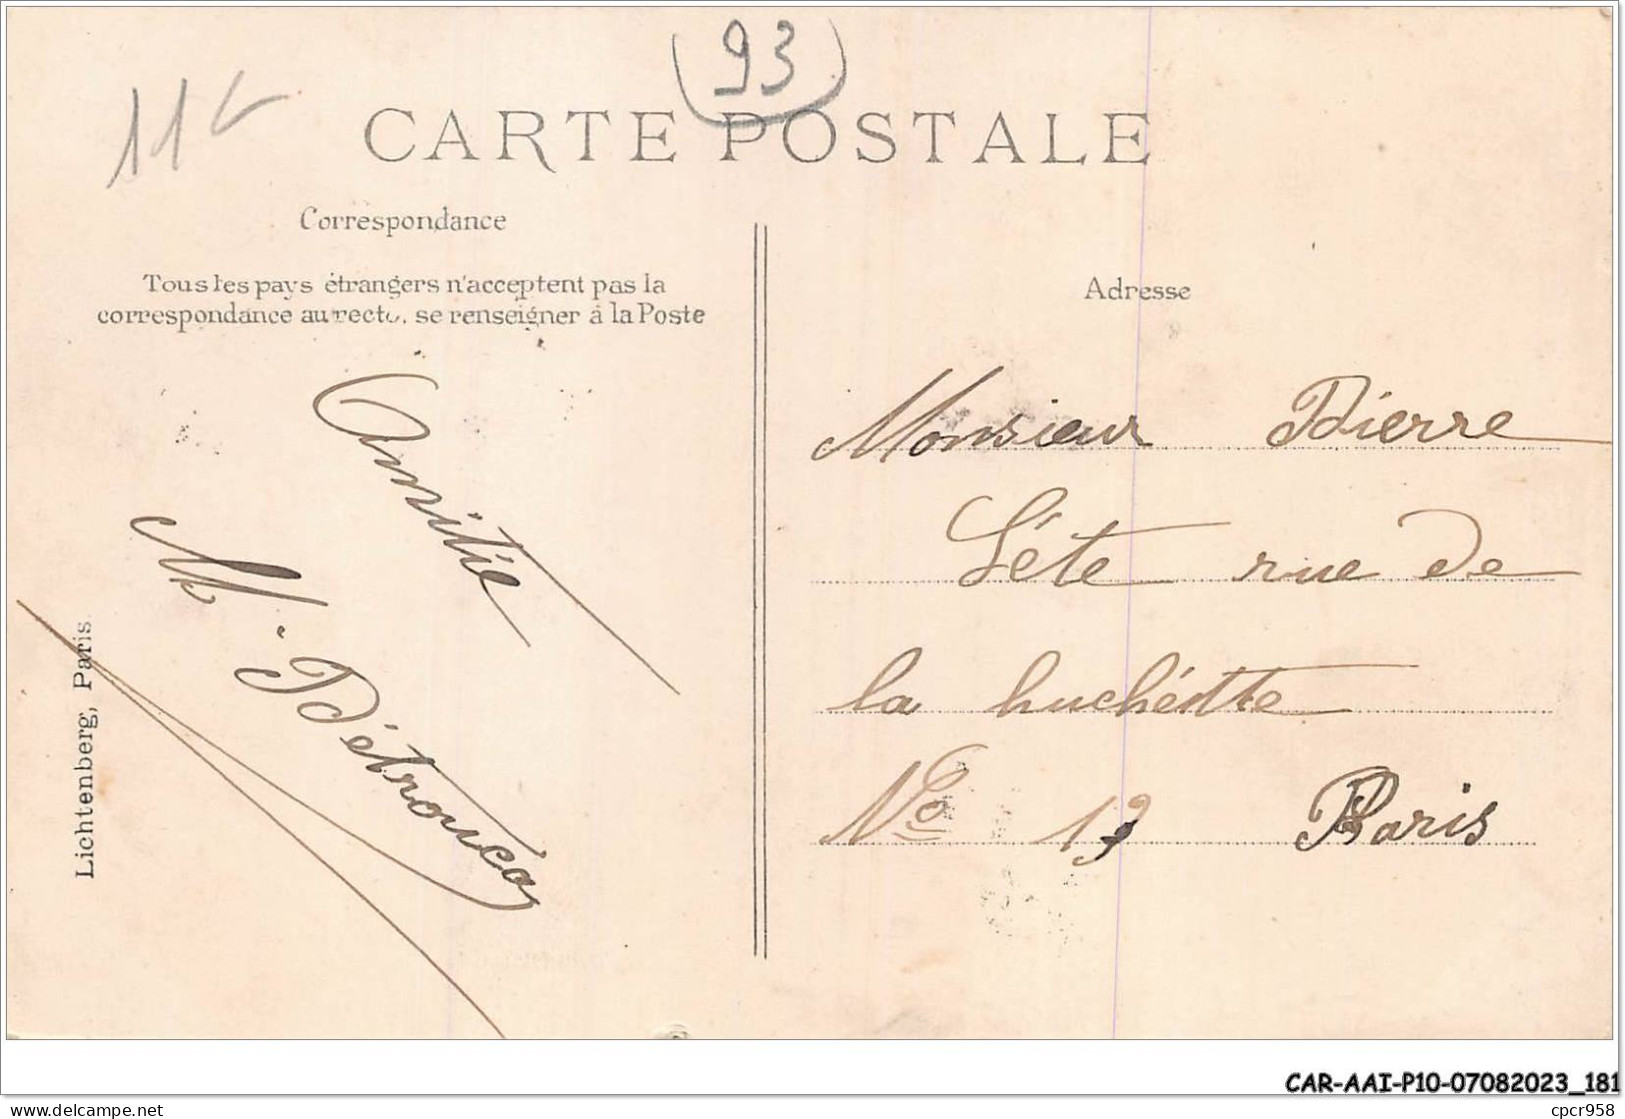 93
11€
CARTE POSTALE
Correspondance
Tous les pays étrangers n'acceptent pas la
correspondance au recto, se renseigner à la Poste
Amitié
M. Détroucq
Lichtenberg, Paris
Adresse
Monsieur Pierre
Séte rue de
la huchétte
No 19 Paris
CAR-AAI-P10-07082023_181
delcampe.net
cpcr958